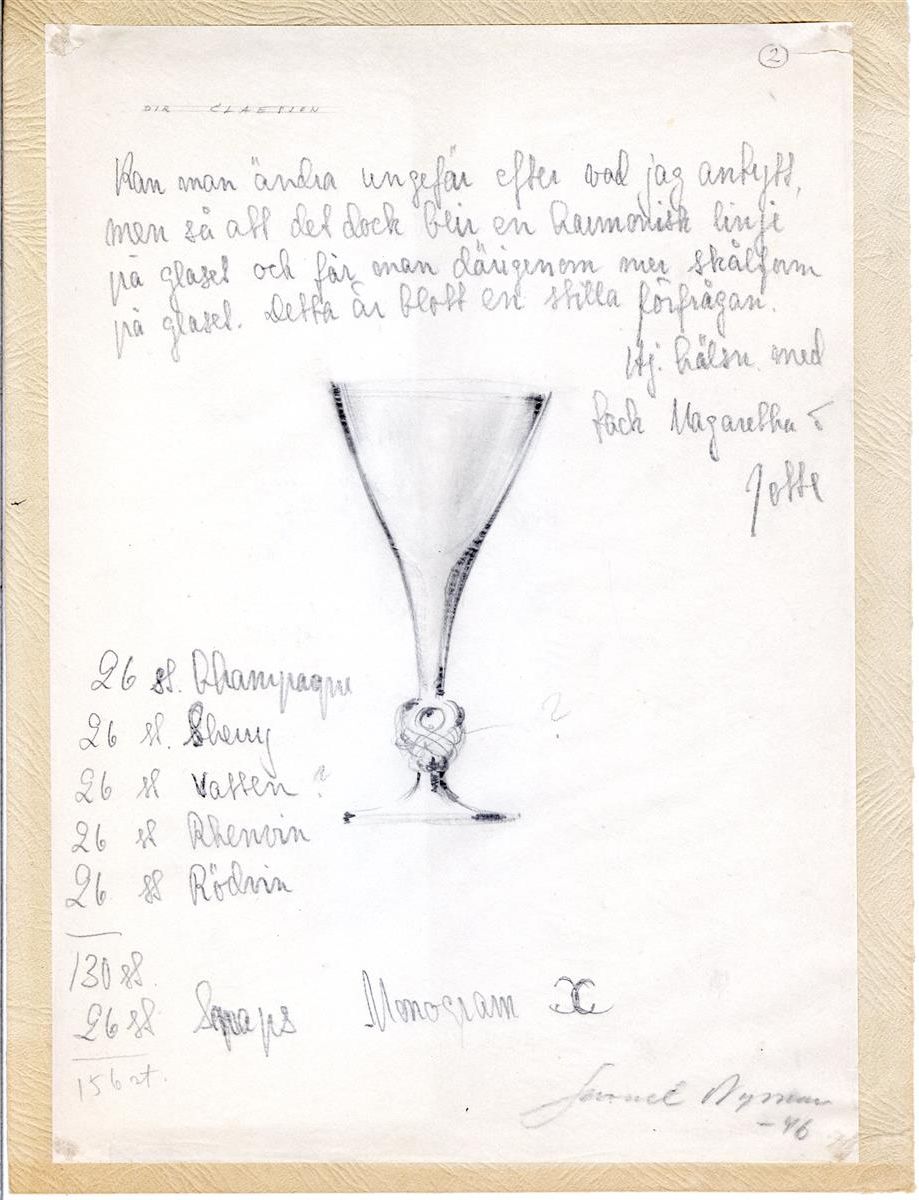 2
DIR CLAESSON
Kan man ändra ungefär efter vad jag antytt,
men så att det dock blir en harmonisk linje
på glaset och får man därigenom mer skålform
på glaset. Detta är blott en stilla förfrågan.
Hj. hälsn. med
tack Magaretha &
Jotte
26 st. Champagne
?
26 st. Sherry
26 st Vatten ?
26 st Rhenvin
26 st Rödvin
130 st.
26 st Snaps Monogram
156 st.
Samuel Nyman
-46